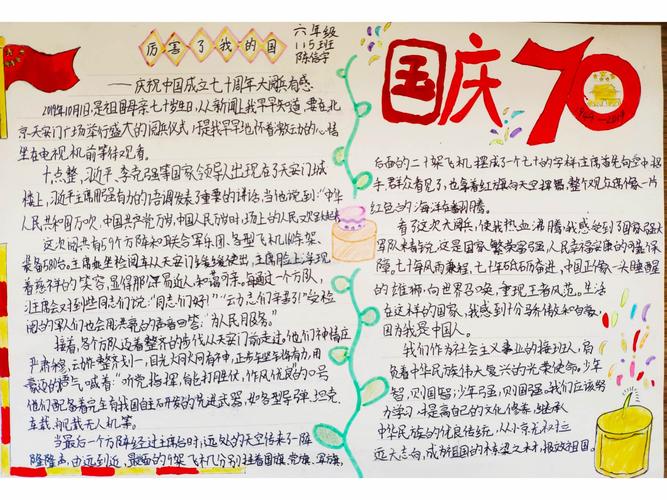 厉害了我的国
六年级
115班
陈信宇
国庆70
1949-2019
——庆祝中国成立七十周年大阅兵有感
2019年10月1日,是祖国母亲七十岁生日,从新闻上我早早知道,要在北
京天安门广场举行盛大的阅兵仪式,于是我早早地怀着激动的心情
坐在电视机前等待观看。
十点整,习近平、李克强等国家领导人出现在了天安门城
楼上,习近平主席用强有力的语调发表了重要的讲话,当他说到:“中华
人民共和国万岁,中国共产党万岁,中国人民万岁时,场上的人民欢
这次阅兵有59个方阵和联合军乐团,各型飞机160余架、
装备580台。主席坐检阅车从天安门缓缓驶出,主席脸上浮现
着慈祥的笑容,显得那么易近人和蔼可亲,每通过一个方队,
习主席会对到些同志们说:“同志们好!”“同志们辛苦了!”受检
阅的军人们也会用洪亮的声音回答:“为人民服务。”
接着,各个方队迈着整齐的步伐从天安门前走过。他们神情庄
严肃穆,动作整齐划一,目光大炯大炯有神,正步走坚定铿锵有力,用
豪迈的语气喊着:“听党指挥,能打胜仗,作风优良”的口号
他们配备着完全有我国自主研发的先进武器,如各型导弹、坦克、
主战、机载无人机等。
当最后一个方阵经过主席台时,远处的天空传来了一阵
隆隆声,由远到近,最面的架飞机分别挂着国旗、党旗、军旗,
后面的二十架飞机摆成了个七十的字样,主席首先向空中招
手,群众看见了,也拿着红旗向天空挥舞,整个观众席像一片
红色的海洋在翻腾。
看了这次大阅兵,使我热血沸腾,我感受到了国家强大
军队来看守,这是国家繁荣富强,人民幸福安康的可靠保
障。七十年风雨兼程,七十年砥砺奋进,中国正像一头睡醒
的雄狮,向世界召唤,重现王者风范。生活
在这样的国家,我感到十分骄傲和自豪,
因为我是中国人。
我们作为社会主义事业的接班人,肩
负着中华民族伟大复兴的光荣使命。少年
智,则国智;少年强,则国强。我们应该努
力学习,提高自己的文化修养,继承
中华民族的优良传统,从小京无
远大志向,成为祖国的栋梁之才,报效祖国。